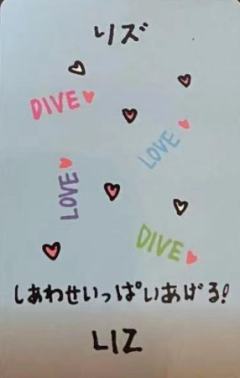 リズ
DIVE♥
LOVE♥
LOVE♥
DIVE♥
しあわせいっぱいあげる!
LIZ